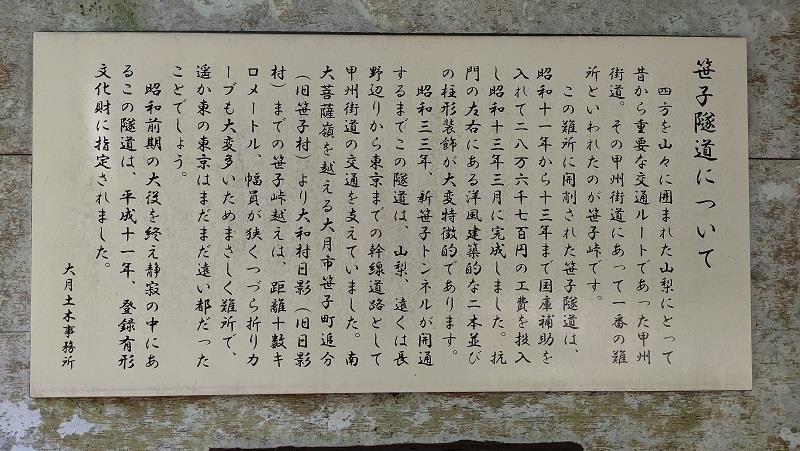 笹子隧道について
四方を山々に囲まれた山梨にとって
昔から重要な交通ルートであった甲州
街道。その甲州街道にあって一番の難
所といわれたのが笹子峠です。
この難所に開削された笹子隧道は、
昭和十一年から十三年まで国庫補助を
入れて二八万六千七百円の工費を投入
し昭和十三年三月に完成しました。抗
門の左右にある洋風建築的な二本並び
の柱形装飾が大変特徴的であります。
昭和三三年、新笹子トンネルが開通
するまでこの隧道は、山梨、遠くは長
野辺りから東京までの幹線道路として
甲州街道の交通を支えていました。南
大菩薩嶺を越える大月市笹子町追分
（旧笹子村）より大和村日影（旧日影
村）までの笹子峠越えは、距離十数キ
ロメートル、幅員が狭くつづら折りカ
ーブも大変多いためまさしく難所で、
遥か東の東京はまだまだ遠い都だった
ことでしょう。
昭和前期の大役を終え静寂の中にあ
るこの隧道は、平成十一年、登録有形
文化財に指定されました。
大月土木事務所